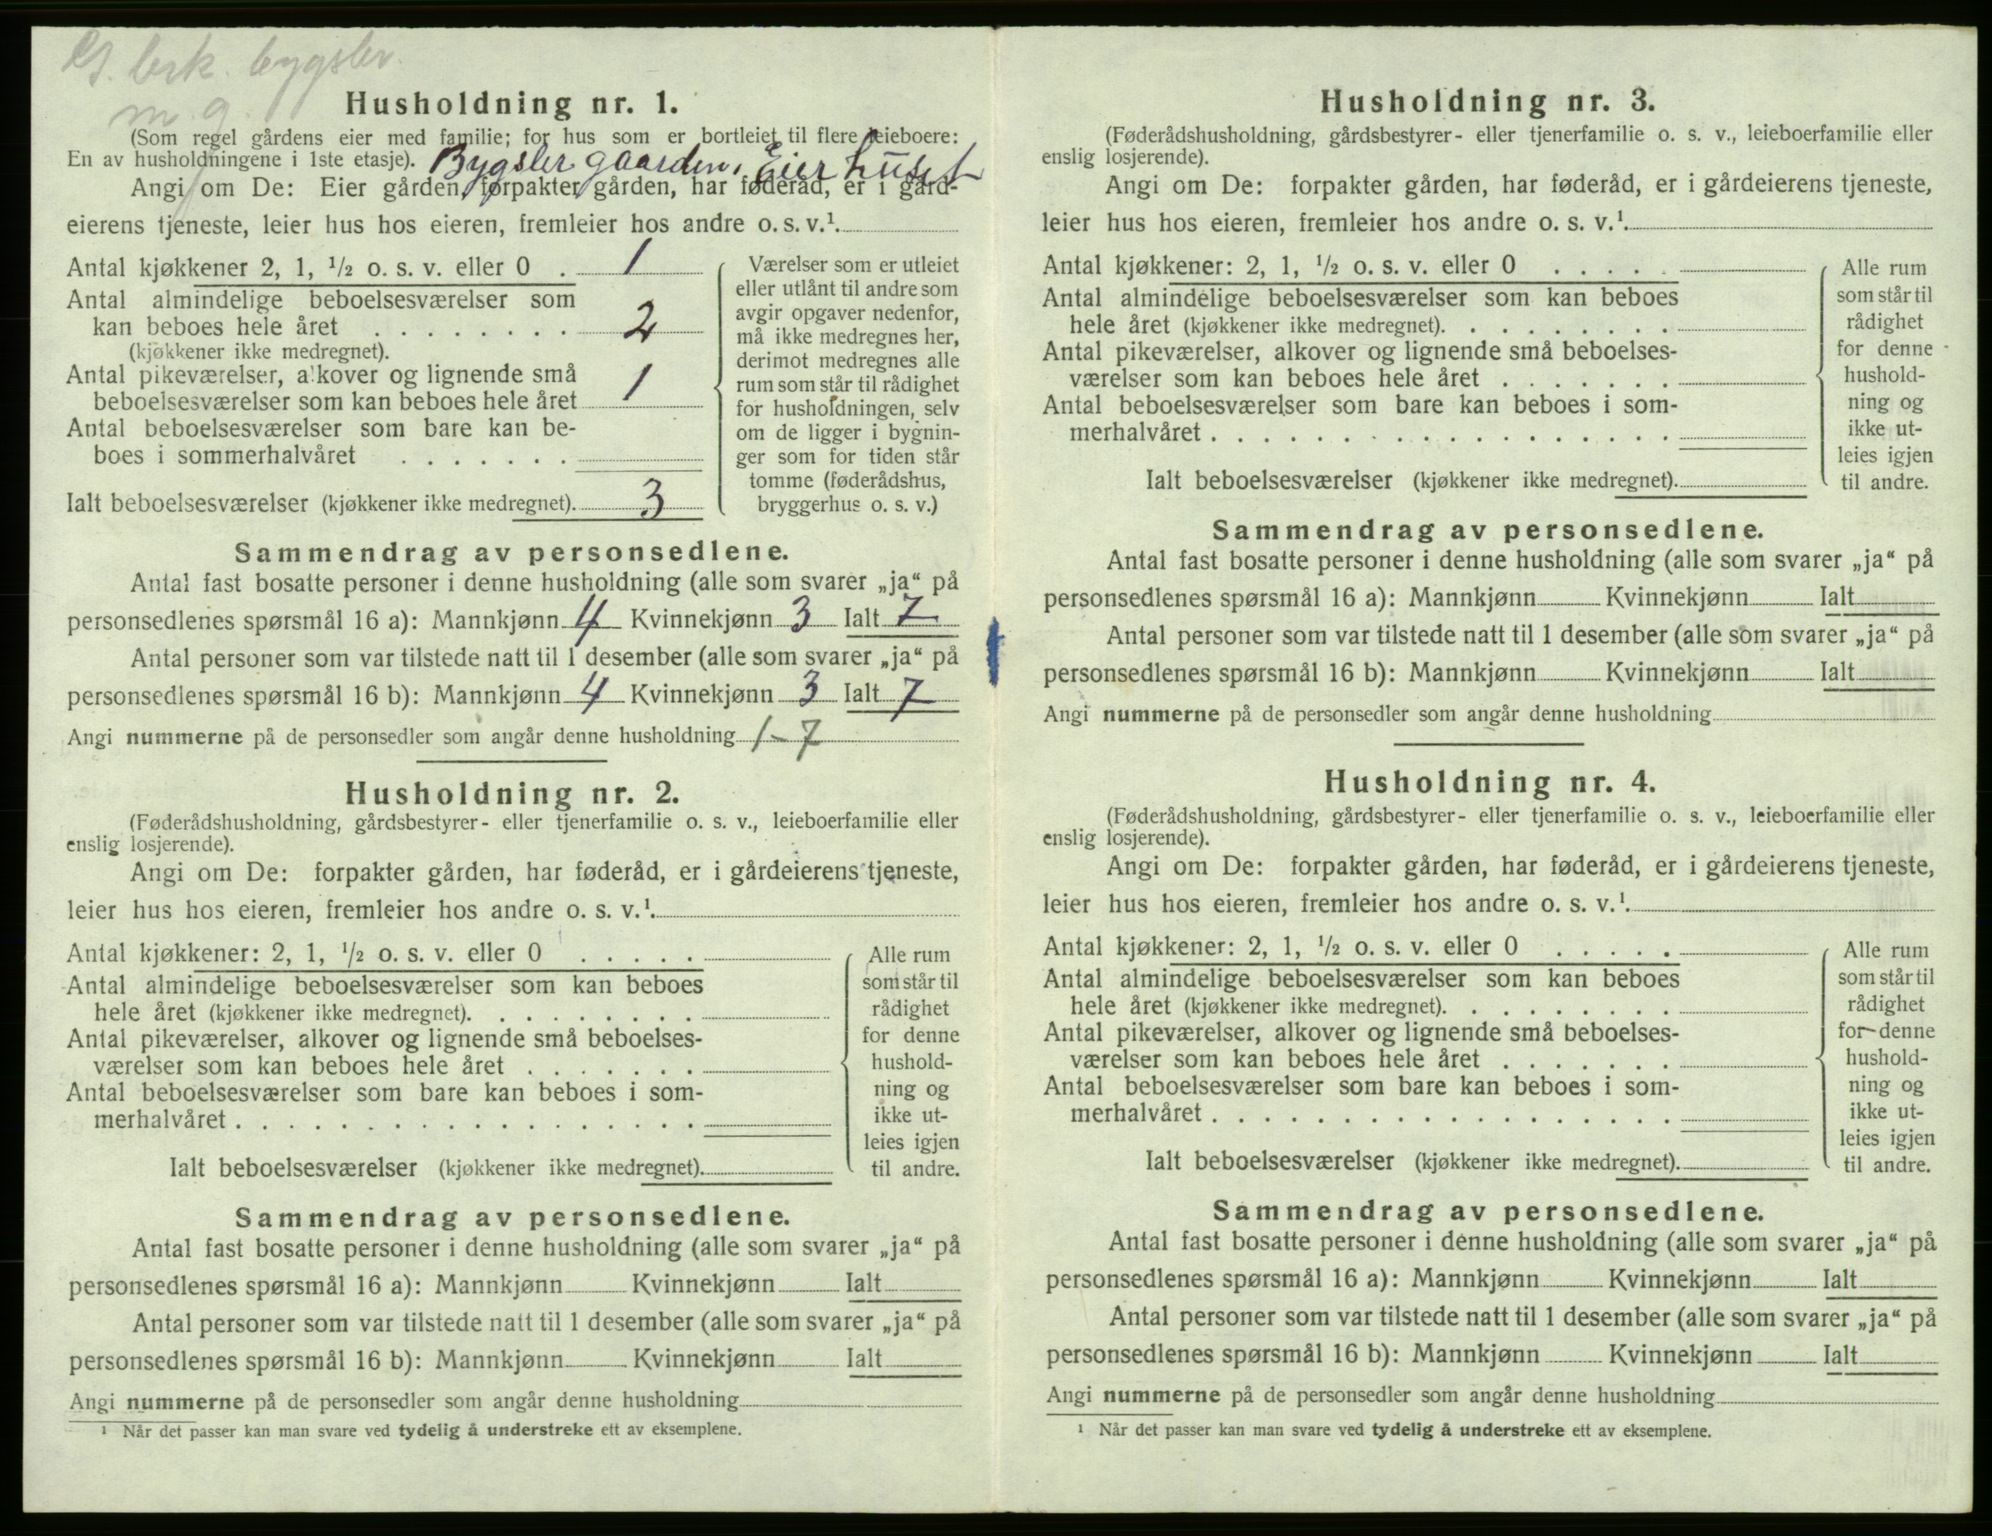 brk. bygsler
m. g.
Husholdning nr. 1.
(Som regel gårdens eier med familie; for hus som er bortleiet til flere leieboere:
En av husholdningene i 1ste etasje). Bygsler gaarden, Eier huset
Angi om De: Eier gården, forpakter gården, har føderåd, er i gård-
eierens tjeneste, leier hus hos eieren, fremleier hos andre o. s. v.¹
Antal kjøkkener 2, 1, ½ o. s. v. eller 0 . 1
Antal almindelige beboelsesværelser som
kan beboes hele året . . . . . . . . 2
(kjøkkener ikke medregnet).
Antal pikeværelser, alkover og lignende små
beboelsesværelser som kan beboes hele året 1
Antal beboelsesværelser som bare kan be-
boes i sommerhalvåret . . . . . . .
Ialt beboelsesværelser (kjøkkener ikke medregnet). 3
Værelser som er utleiet
eller utlånt til andre som
avgir opgaver nedenfor,
må ikke medregnes her,
derimot medregnes alle
rum som står til rådighet
for husholdningen, selv
om de ligger i bygnin-
ger som for tiden står
tomme (føderådshus,
bryggerhus o. s. v.)
Sammendrag av personsedlene.
Antal fast bosatte personer i denne husholdning (alle som svarer „ja“ på
personsedlenes spørsmål 16 a): Mannkjønn 4 Kvinnekjønn 3 Ialt 7
Antal personer som var tilstede natt til 1 desember (alle som svarer „ja“ på
personsedlenes spørsmål 16 b): Mannkjønn 4 Kvinnekjønn 3 Ialt 7
Angi nummerne på de personsedler som angår denne husholdning 1-7
Husholdning nr. 2.
(Føderådshusholdning, gårdsbestyrer- eller tjenerfamilie o. s. v., leieboerfamilie eller
enslig losjerende).
Angi om De: forpakter gården, har føderåd, er i gårdeierens tjeneste,
leier hus hos eieren, fremleier hos andre o. s. v.¹.
Antal kjøkkener: 2, 1, ½ o. s. v. eller 0 . . . . .
Antal almindelige beboelsesværelser som kan beboes
hele året (kjøkkener ikke medregnet). . . . . . . . .
Antal pikeværelser, alkover og lignende små beboelses-
værelser som kan beboes hele året . . . . . . .
Antal beboelsesværelser som bare kan beboes i som-
merhalvåret . . . . . . . . . . . . . . . . . .
Ialt beboelsesværelser (kjøkkener ikke medregnet).
Alle rum
som står til
rådighet
for denne
hushold-
ning og
ikke ut-
leies igjen
til andre.
Sammendrag av personsedlene.
Antal fast bosatte personer i denne husholdning (alle som svarer „ja“ på
personsedlenes spørsmål 16 a): Mannkjønn Kvinnekjønn Ialt
Antal personer som var tilstede natt til 1 desember (alle som svarer „ja“ på
personsedlenes spørsmål 16 b): Mannkjønn Kvinnekjønn Ialt
Angi nummerne på de personsedler som angår denne husholdning
¹ Når det passer kan man svare ved tydelig å understreke ett av eksemplene.
Husholdning nr. 3.
(Føderådshusholdning, gårdsbestyrer- eller tjenerfamilie o. s. v., leieboerfamilie eller
enslig losjerende).
Angi om De: forpakter gården, har føderåd, er i gårdeierens tjeneste,
leier hus hos eieren, fremleier hos andre o. s. v.¹.
Antal kjøkkener: 2, 1, ½ o. s. v. eller 0 . . . . .
Antal almindelige beboelsesværelser som kan beboes
hele året (kjøkkener ikke medregnet). . . . . . . . .
Antal pikeværelser, alkover og lignende små beboelses-
værelser som kan beboes hele året . . . . . . .
Antal beboelsesværelser som bare kan beboes i som-
merhalvåret . . . . . . . . . . . . . . . . . .
Ialt beboelsesværelser (kjøkkener ikke medregnet).
Alle rum
som står til
rådighet
for denne
hushold-
ning og
ikke ut-
leies igjen
til andre.
Sammendrag av personsedlene.
Antal fast bosatte personer i denne husholdning (alle som svarer „ja“ på
personsedlenes spørsmål 16 a): Mannkjønn Kvinnekjønn Ialt
Antal personer som var tilstede natt til 1 desember (alle som svarer „ja“ på
personsedlenes spørsmål 16 b): Mannkjønn Kvinnekjønn Ialt
Angi nummerne på de personsedler som angår denne husholdning
Husholdning nr. 4.
(Føderådshusholdning, gårdsbestyrer- eller tjenerfamilie o. s. v., leieboerfamilie eller
enslig losjerende).
Angi om De: forpakter gården, har føderåd, er i gårdeierens tjeneste,
leier hus hos eieren, fremleier hos andre o. s. v.¹.
Antal kjøkkener: 2, 1, ½ o. s. v. eller 0 . . . . .
Antal almindelige beboelsesværelser som kan beboes
hele året (kjøkkener ikke medregnet). . . . . . . . .
Antal pikeværelser, alkover og lignende små beboelses-
værelser som kan beboes hele året . . . . . . .
Antal beboelsesværelser som bare kan beboes i som-
merhalvåret . . . . . . . . . . . . . . . . . .
Ialt beboelsesværelser (kjøkkener ikke medregnet).
Alle rum
som står til
rådighet
for denne
hushold-
ning og
ikke ut-
leies igjen
til andre.
Sammendrag av personsedlene.
Antal fast bosatte personer i denne husholdning (alle som svarer „ja“ på
personsedlenes spørsmål 16 a): Mannkjønn Kvinnekjønn Ialt
Antal personer som var tilstede natt til 1 desember (alle som svarer „ja“ på
personsedlenes spørsmål 16 b): Mannkjønn Kvinnekjønn Ialt
Angi nummerne på de personsedler som angår denne husholdning
¹ Når det passer kan man svare ved tydelig å understreke ett av eksemplene.